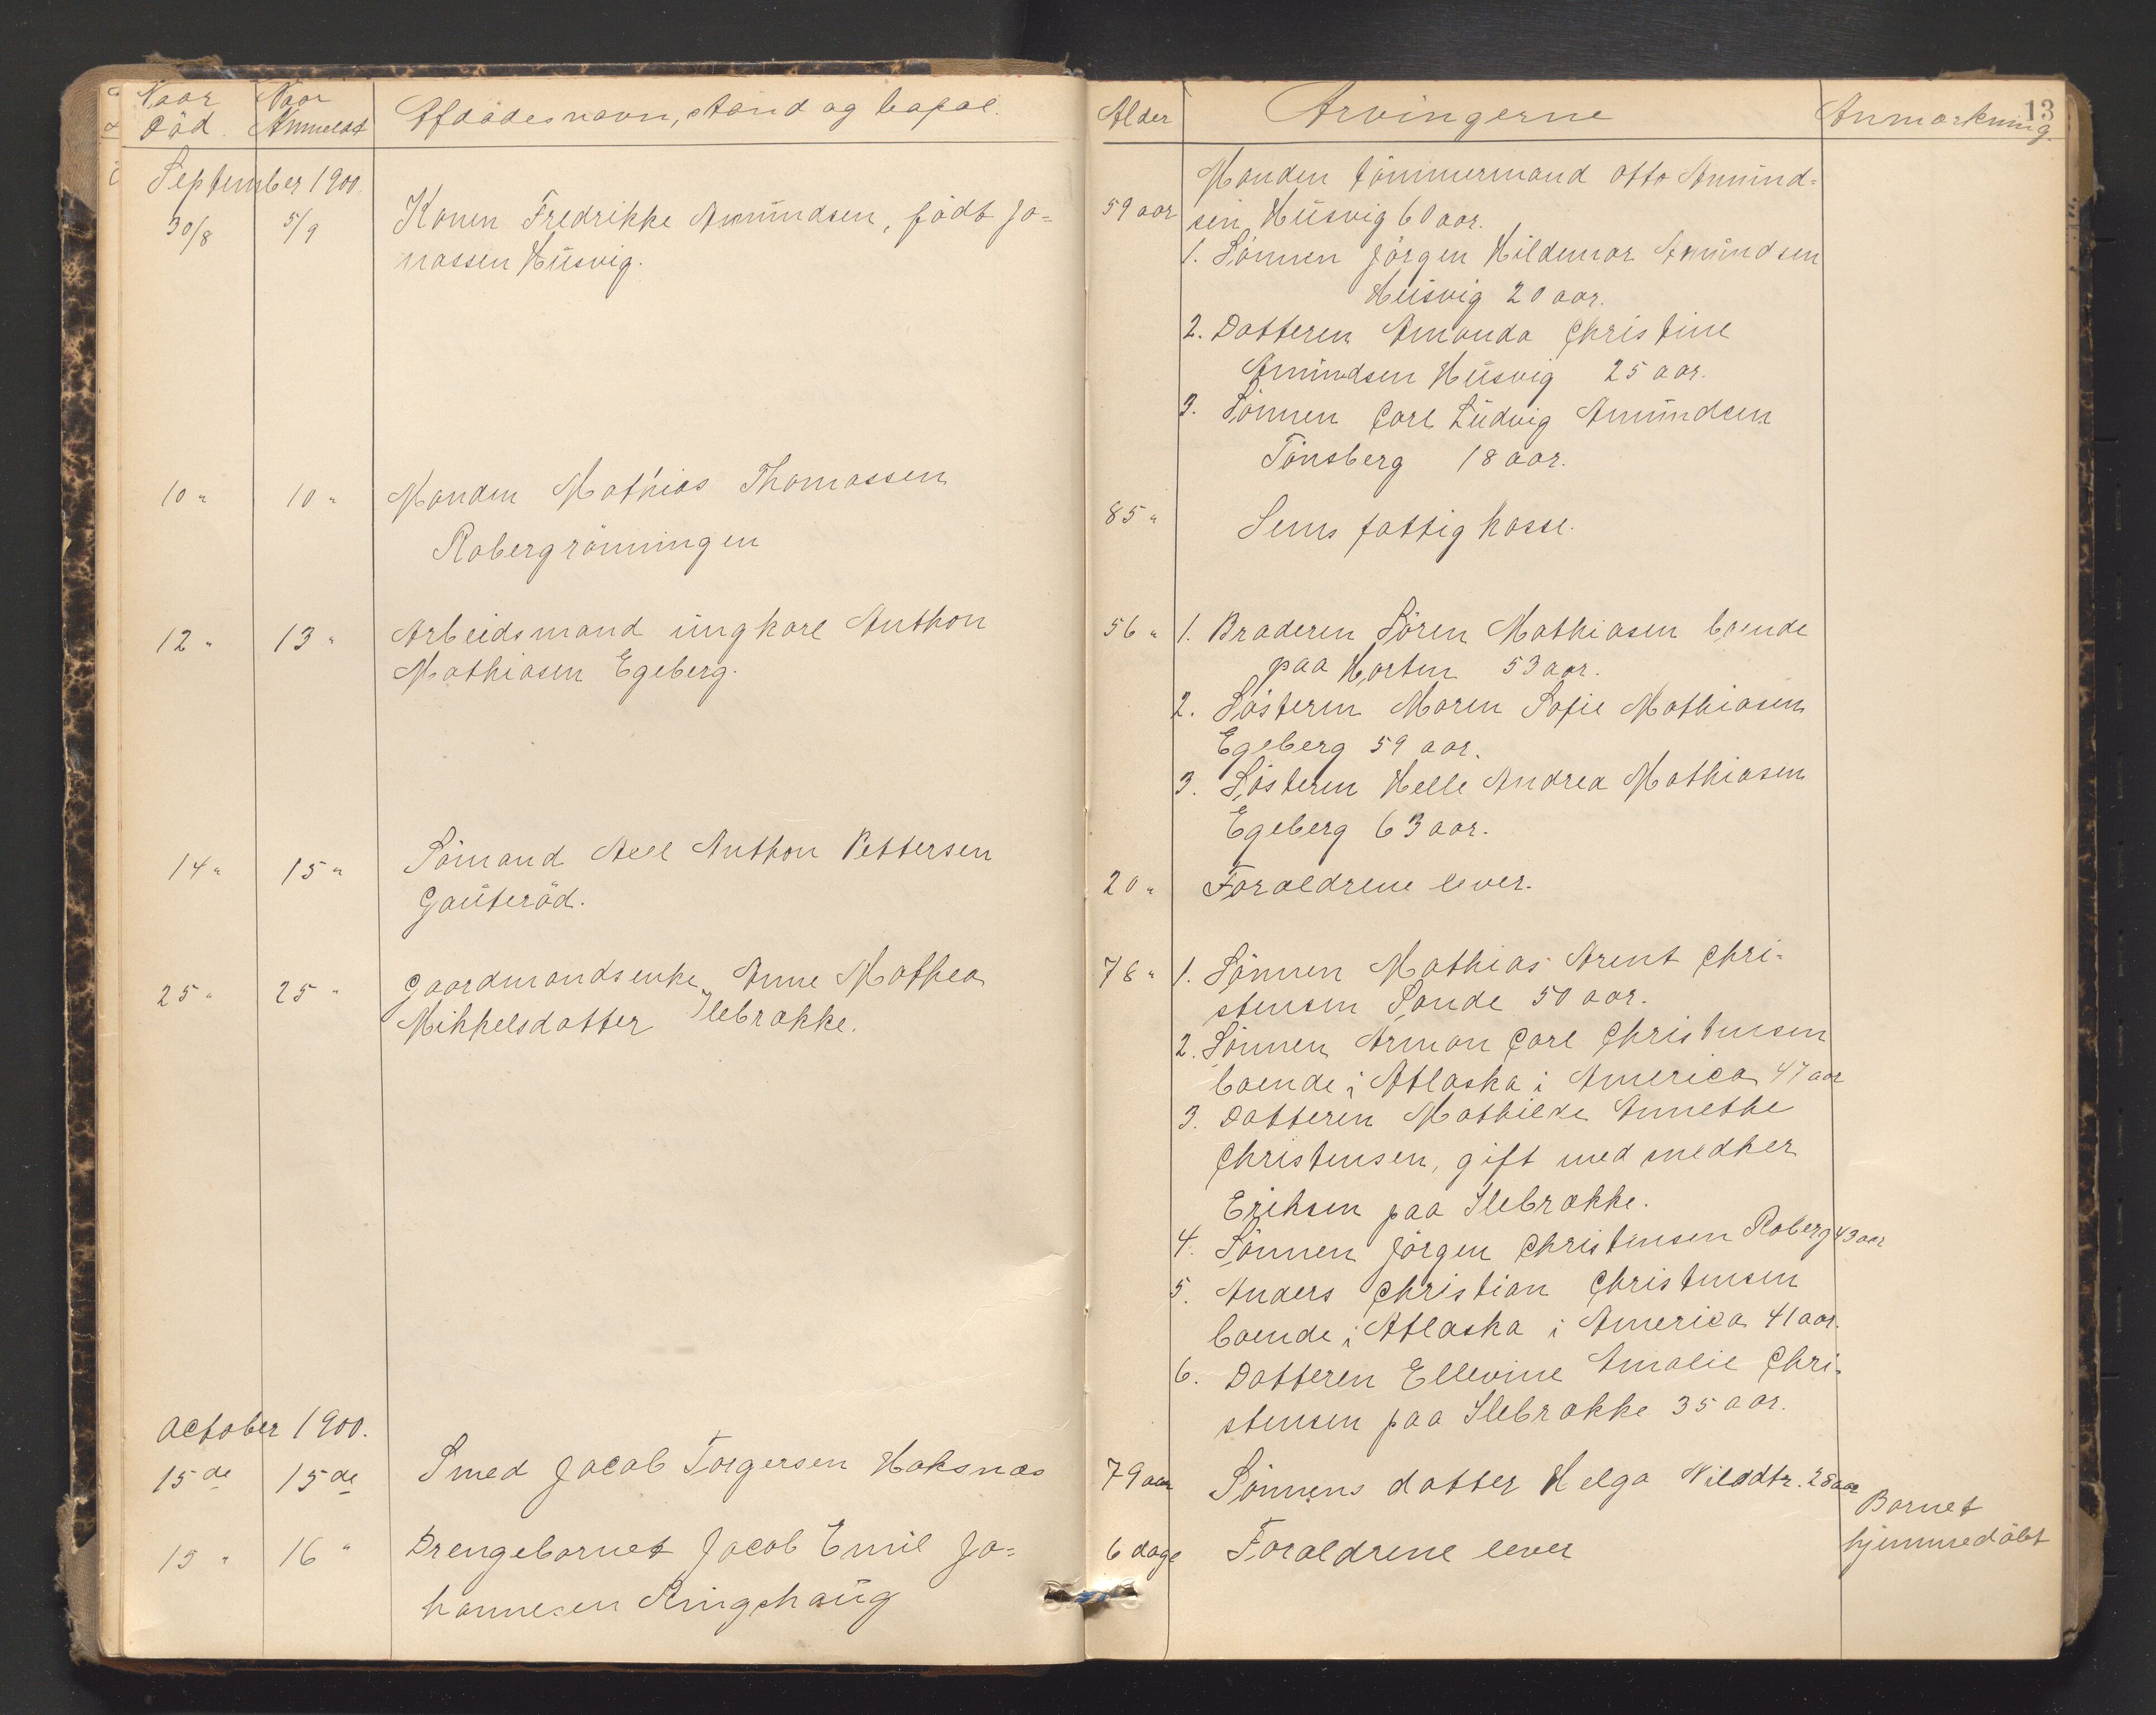 13
Naar Död
Naar Anmeldt
Afdödes navn, stand og bopæl.
Alder
Arvingerne
Anmærkning.
September 1900.
30/8 5/9 Konen Fredrikke Amundsen, födt Jo=
nassen Husvig.
59 aar
Manden tömmermand Otto Amund=
sen, Husvig 60 aar.
1. Sönnen Jörgen Hildemar Amundsen
Husvig 20 aar.
2. Datteren Amanda Christine
Amundsen Husvig 25 aar.
3. Sönnen Carl Ludvig Amundsen
Tönsberg 18 aar.
10 " 10 " Manden Mathias Thomassen
Robergrönningen
85 "
Sems fattigkasse.
12 " 13 " Arbeidsmand ungkarl Anthon
Mathiasen Egeberg.
56 "
1. Broderen Sören Mathiasen boende
paa Horten 53 aar.
2. Sösteren Maren Sofie Mathiasen
Egeberg 59 aar.
3. Sösteren Helle Andrea Mathiasen
Egeberg 63 aar.
14 " 15 " Sömand Axel Anthon Pettersen
Gauteröd.
20 "
Forældrene lever.
25 " 25 " Gaardmandsenke Anne Mathea
Mikkelsdatter Ilebrække.
78 "
1. Sönnen Mathias Arent Chri-
stensen Sande 50 aar.
2. Sönnen Arman Carl Christensen
boende i Atlaska i America 47 aar
3. Datteren Mathilde Annethe
Christensen, gift med snedker
Eriksen paa Ilebrække.
4. Sönnen Jörgen Christensen Roberg 43 aar
5. Anders Christian Christensen
boende i Atlaska i America 41 aar.
6. Datteren Ellevine Amalie Chri-
stensen paa Ilebrække 35 aar.
October 1900.
15de 15de Smed Jacob Torgersen Hoksnæs
79 aar
Sönnens datter Helga Nilsdtr. 28 aar
15 " 16 " Drengebarnet Jacob Emil Jo=
hannesen Ringshaug
6 dage
Forældrene lever
Barnet
hjemmedöbt